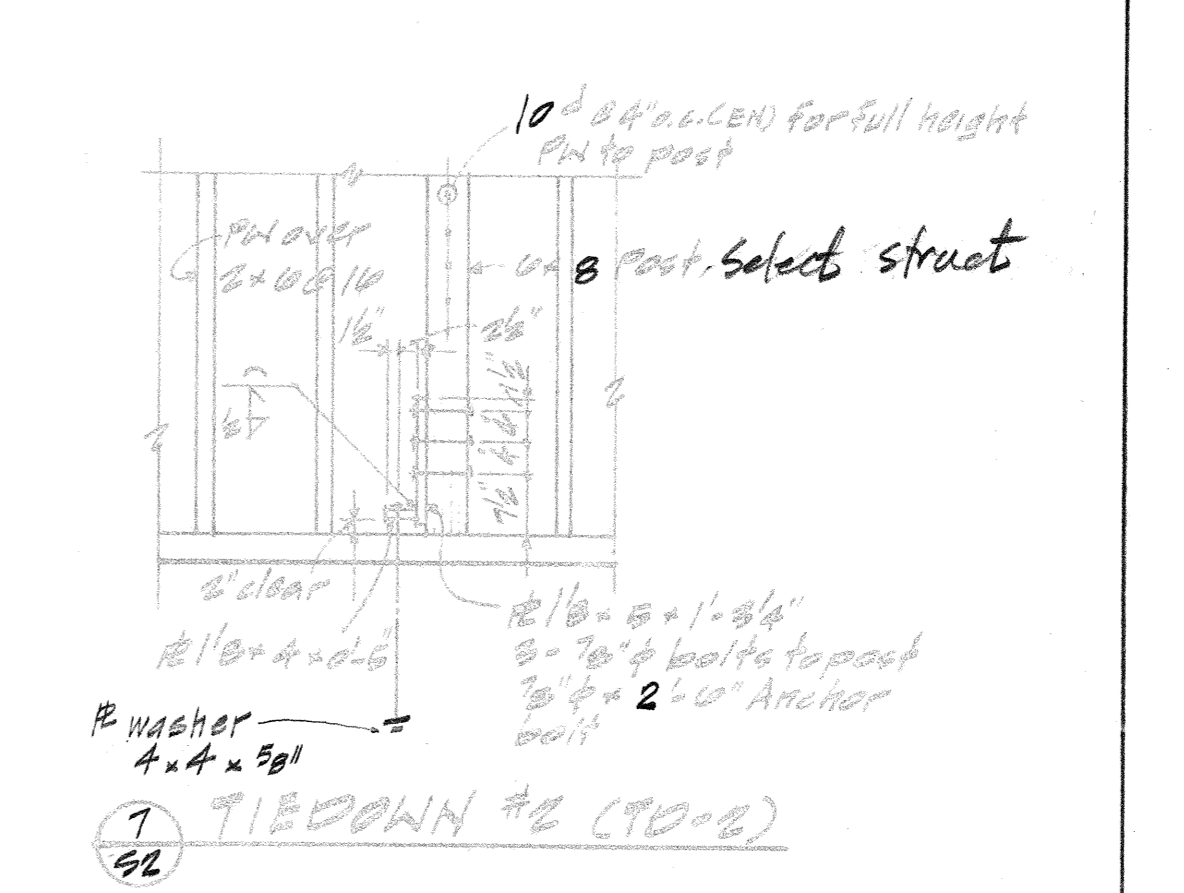 10d @ 4" o.c. (EN) for full height
PW to post
PW over
2x6@16
6x8 Post. Select struct
1½"
2½"
1½"
4
4
7½"
2" clear
PL 1/8 x 5 x 1'-3¼"
PL 1/8 x 4 x 0'-5"
3 - ⅞"φ bolts to post
⅞"φ x 2'-6" Anchor
bolt
PL washer
4 x 4 x ⅝"
7
S2
TIEDOWN #2 (TD-2)